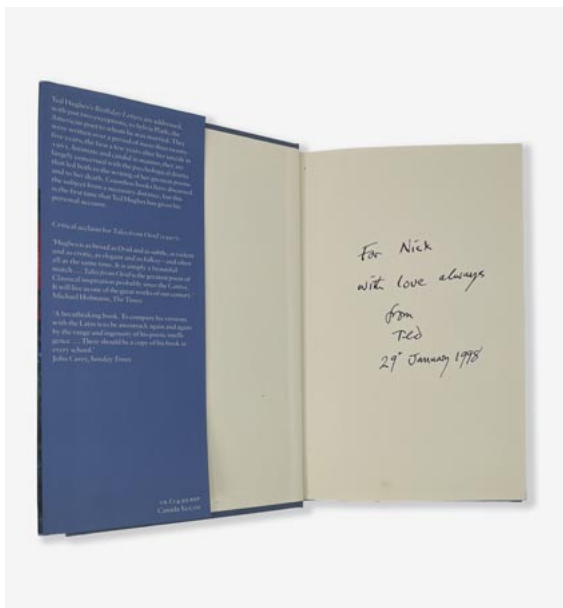 Ted Hughes's Birthday Letters are addressed,
with just two exceptions, to Sylvia Plath, the
American poet to whom he was married. They
were written over a period of more than twenty-
five years, the first a few years after her suicide in
1963. Intimate and candid in manner, they are
largely concerned with the psychological drama
that led both to the writing of her greatest poems
and to her death. Countless books have discussed
the subject from a necessary distance, but this
is the first time that Ted Hughes has given his
personal account.
Critical acclaim for Tales from Ovid (1997):
'Hughes is as broad as Ovid and as subtle, as violent
and as erotic, as elegant and as folksy – and often
all at the same time. It is simply a beautiful
match … Tales from Ovid is the greatest poem of
Classical inspiration probably since the Cantos.
It will live as one of the great works of our century.'
Michael Hofmann, The Times
'A breathtaking book. To compare his versions
with the Latin is to be awestruck again and again
by the range and ingenuity of his poetic intelli-
gence … There should be a copy of his book in
every school.'
John Carey, Sunday Times
UK £14.99 RRP
Canada
For Nick
with love always
from
Ted
29th January 1998